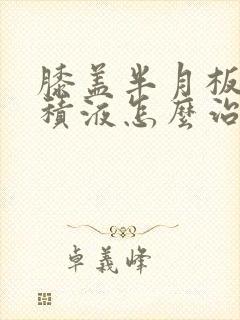 膝盖半月板
積液怎麼治
卓義峰